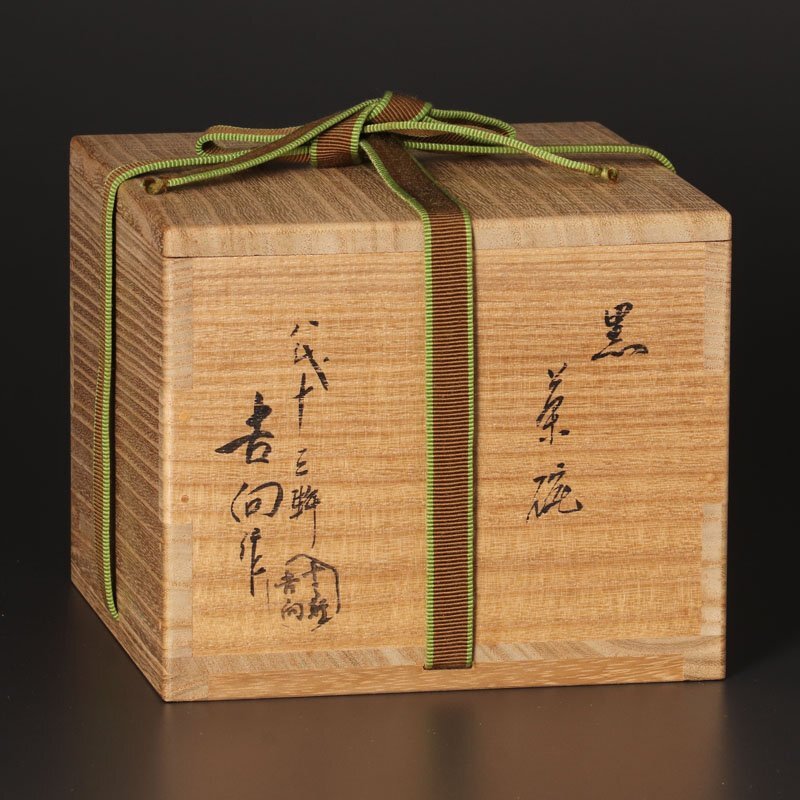 黒茶碗
八代十三軒
吉向作
十三軒
吉向